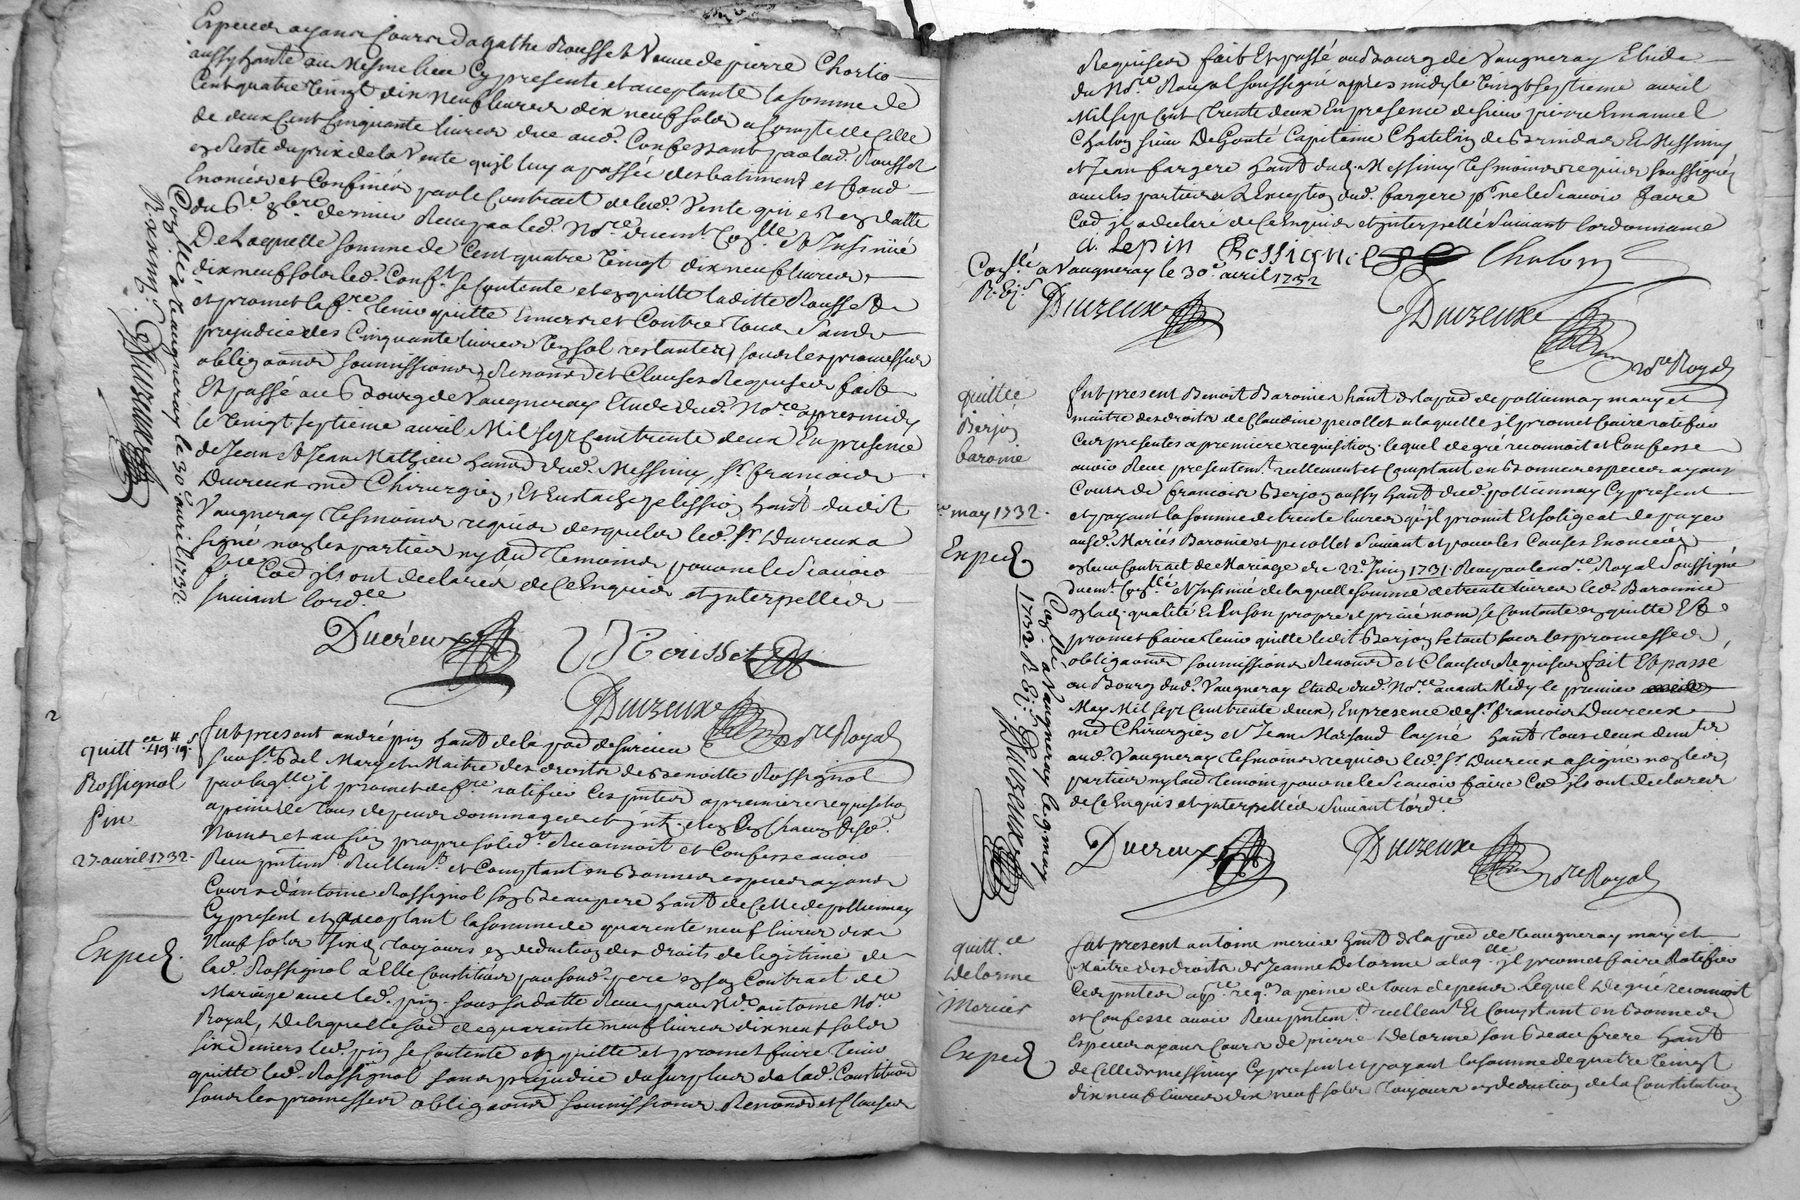 Especes ayans cours d'agathe Rousset veuve de pierre
aussy habte au Mesme lieu Cy presente et acceptante la somme de
Cent quatre vingt dix neuf livres dix neuf sols a Compte de celle
de deux Cent Cinquante livres due aud. Confessant par lad. Rousset
et Reste du prix de la Vente qu'jl luy a passée des batiments et fond
Enoncés et Confinés par le Contract de lad. Vente qui est en datte
du 6e 8bre dernier Receu par led. Nore duemt Conllé et Insinué
De Laquelle somme de Cent quatre vingt dix neuf livres
dix neuf sols led. Conft se Contente et en quitte laditte Rousset
et promet la fre tenir quitte Envers et Contre tous sans
prejudice des Cinquante livres un sol restantes, sous les promesses
obligaons soumissions, Renons et Clauses Requises fait
Et passé au Bourg de Vaugneray Etude dud. Nore apres midy
le vingt septieme avril Mil sept Cent trente deux En presence
de Jean St Jean Mathieu habt dud. Messimy, Sr francois
Ducreux md Chirurgien, Et Eustache pelission habt dudit
Vaugneray tesmoins requis desquels led. Sr Ducreux a
signé non les parties ny led temoins pour ne le scavoir
fre Cod jls ont declarés de ce Enquis et jnterpellés
suivant lord.ce
Ducreux Rousset
Ducreux nore Royal
Conllé a vaugneray le 30e avril 1732.
R. Ducreux
2
quittce 49# 19s
Rossignol
Pin
27. avril 1732.
Exped.
Fut present andré pin habt de la pad de
Mary et Maitre des droits de Benoitte Rossignol
par laqlle jl promet de fre ratiffier Ces pntes a premiere requisition
a peine de tous depens dommages et jnts
Noms et au sien propre led. Reconnoit et Confesse avoir
Receu pntemt Reellemt et Comptant en Bonnes especes ayans
Cours d'antoine Rossignol son Beaupere habt de Celle de pollionnay
Cy present et acceptant la somme de quarente neuf livres dix
Neuf sols six d. toujours en deduction des droits de legitime de
lad. Rossignol a Elle Constitués par sond. pere en son Contract de
Mariage avec led. pin sous sa datte Receu par Me antoine Nore
Royal, De laquelle some de quarente neuf livres dix neuf sols
six deniers led. pin se Contente en quitte et promet faire tenir
quitte led. Rossignol sans prejudice du surplus de lad. Constitution
sous les promesses obligaons soumissions Renons et Clauses
Requises fait Et passé au Bourg de Vaugneray Etude
du Nore Royal soussigné apres midy le vingt septieme avril
Mil sept Cent trente deux En presence de Sieur pierre Emanuel
Chalon sieur De Gonté Capitaine Chatelain de Brindas Et Messimy
et Jean fargere habt dud. Messimy tesmoins requis soussignés
avec les parties a L'Exception dud. fargere pr ne le scavoir faire
Cod jl a declaré de Ce Enquis et jnterpellé suivant lordonnance
a. Lepin Rossignol Chalon
Conllé a Vaugneray le 30e avril 1732
Ducreux
Ducreux
nore Royal
quittce
Berjon
baronie
may 1732.
Exped
Conllé a Vaugneray le 9 may
1732 Ducreux
Fut present Benoit Baronier habt de la pad de pollionnay mary et
maitre des droits de Claudine pecollet a laquelle jl promet faire ratiffier
Ces presentes a premiere requisition. lequel de gré reconnoit et Confesse
avoir Receu presentemt reellement et Comptant en Bonnes especes ayans
Cours de francois Berjon aussy habt dud. pollionnay Cy present
et payant la somme de trente livres qu'jl promit Et soligeat de payer
ausd. Mariés Baronier et pecollet suivant et pour les Causes Enoncées
en leur Contract de Mariage du 22e Juin 1731. Receu par le nore Royal soussigné
duemt Conllé et Insinué de laquelle somme de trente livres led. Baronier
en lad. qualité Et En son propre et privé nom se Contente en quitte Et
promet faire tenir quitte ledit Berjon le tout sous les promesses
obligaons soumissions Renons et Clauses Requises fait Et passé
au Bourg dud. Vaugneray Etude dud. Nore avant Midy le premier
May Mil sept Cent trente deux, En presence de Sr francois Ducreux
md Chirurgien et Jean Marsaud layné habt tous deux
aud. Vaugneray tesmoins requis led. Sr Ducreux a signé non les
parties ny lad temoin pour ne le scavoir faire Cod jls ont declarés
de Ce Enquis et jnterpellés suivant lordce
Ducreux Ducreux nore Royal
quittce
Delorme
Mercier
Exped
Fut present antoine mercier habt de la pad de vaugneray mary et
Maitre des droits de Jeanne Delorme a laqlle jl promet faire Ratiffier
Ces pntes a pre reqon a peine de tous depens Lequel De gré reconnoit
et Confesse avoir Receu pntemt reellemt Et Comptant en Bonnes
Especes ayans Cours de pierre Delorme son Beau frere habt
de Celle de messimy Cy present et payant la somme de quatre vingt
dix neuf livres dix neuf sols toujours en deduction de la Constitution